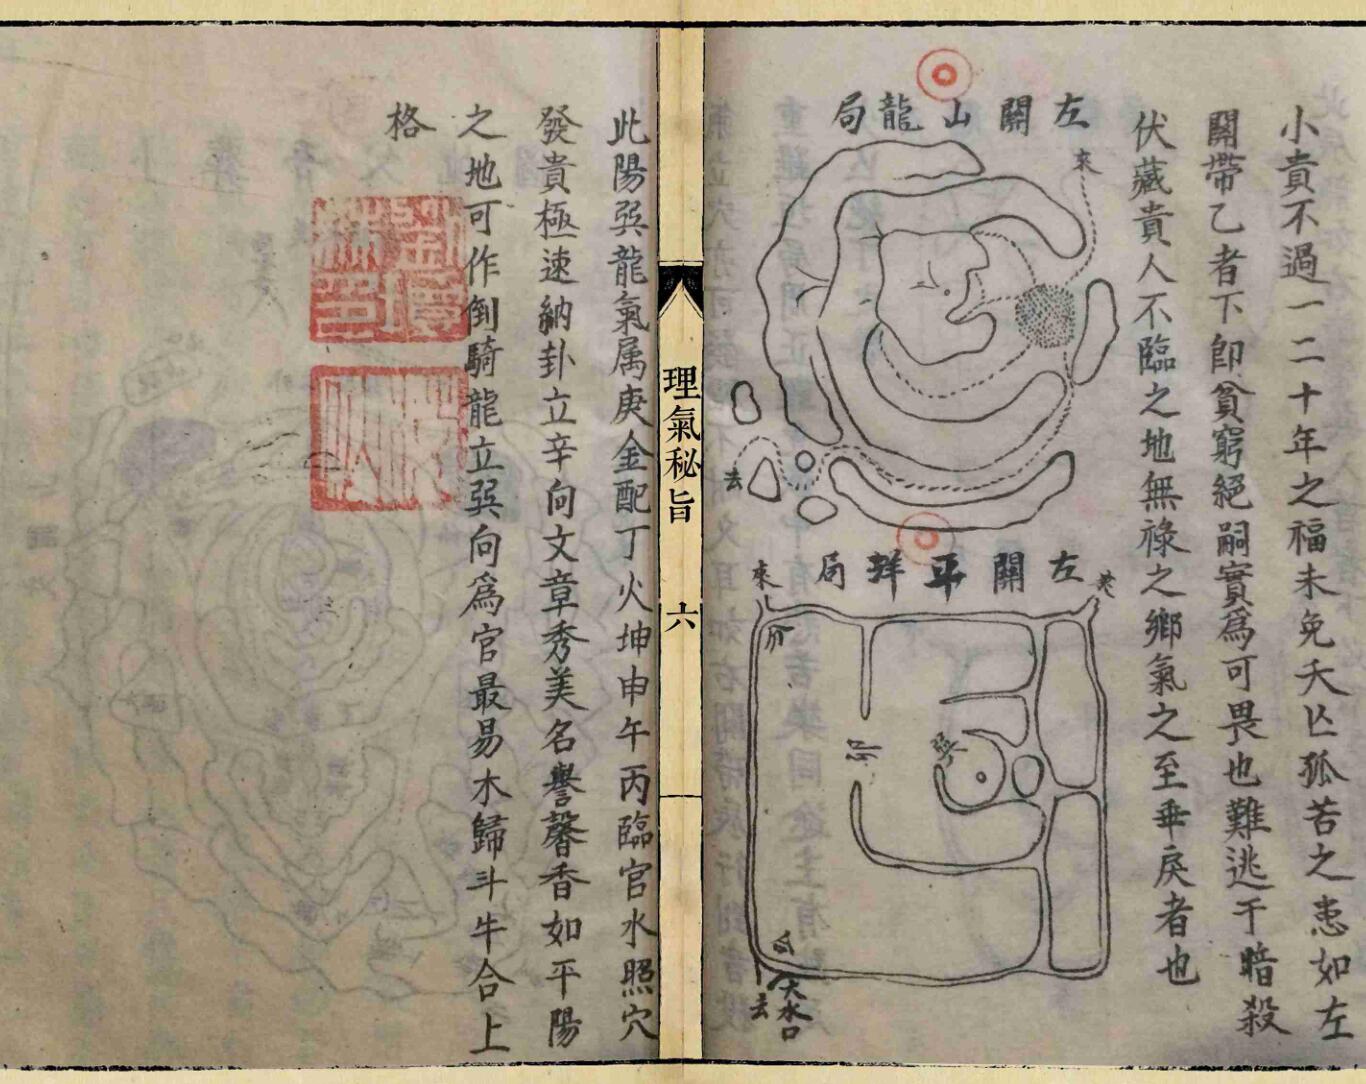 小貴不過一二十年之福未免夭亡孤苦之患如左
關帶乙者下卽貧窮絕嗣實為可畏也難逃于暗殺
伏藏貴人不臨之地無祿之鄉氣之至垂戾者也
左關山龍局
來
去
左關平洋局
來
來
巽
去
大水口
理氣秘旨
六
此陽巽龍氣属庚金配丁火坤申午丙臨官水照穴
發貴極速納卦立辛向文章秀美名譽馨香如平陽
之地可作倒騎龍立巽向為官最易木歸斗牛合上
格